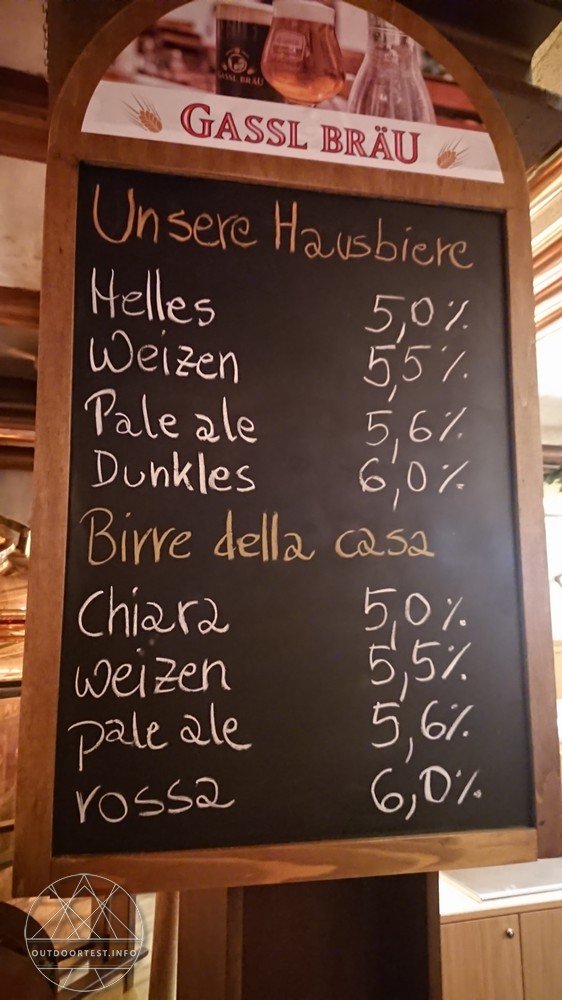 GASSL BRÄU
GASSL BRÄU
Unsere Hausbiere
Helles 5,0%
Weizen 5,5%
Pale ale 5,6%
Dunkles 6,0%
Birre della casa
Chiara 5,0%
weizen 5,5%
pale ale 5,6%
rossa 6,0%
OUTDOORTEST.INFO